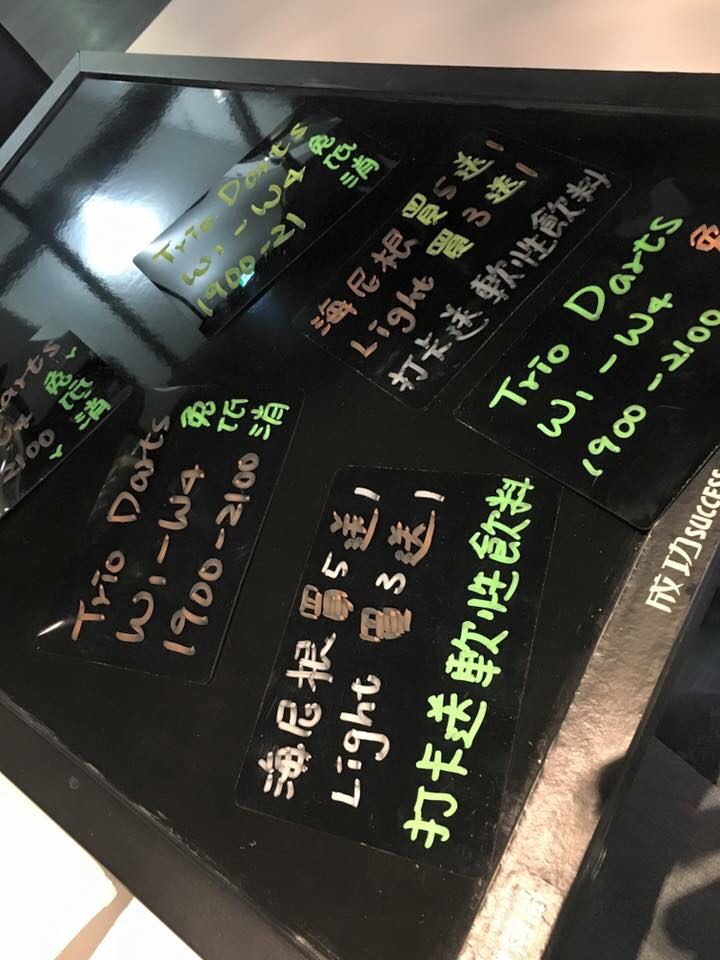 Trio Darts
W1-W4
1900-21
免低消
海尼根 買5送1
Light 買3送1
打卡送 軟性飲料
Trio Darts
W1-W4
1900-2100
免
arts
2100
免低消
Trio Darts
W1-W4
1900-2100
免低消
海尼根 買5送1
Light 買3送1
打卡送軟性飲料
成功 SUCCESS